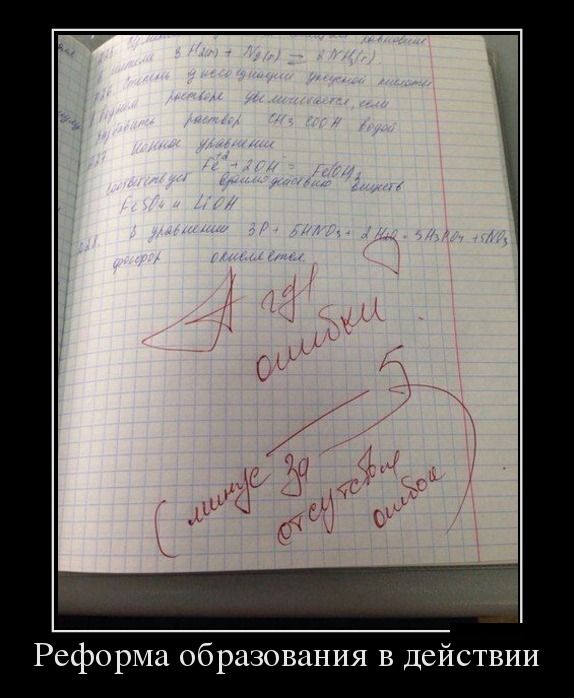 системе 3H2(г) + N2(г) = 2NH3(г).
Степень диссоциации уксусной кислоты
в водном растворе увеличивается, если
разбавить раствор CH3COOH водой
Ионное уравнение
Fe+2 + 2OH- = Fe(OH)2
соответствует взаимодействию веществ
FeSO4 и LiOH
В уравнении 3P + 5HNO3 + 2H2O = 3H3PO4 + 5NO
фосфор окисляется
А где
ошибки
5
(минус за
отсутствие
ошибок)
Реформа образования в действии